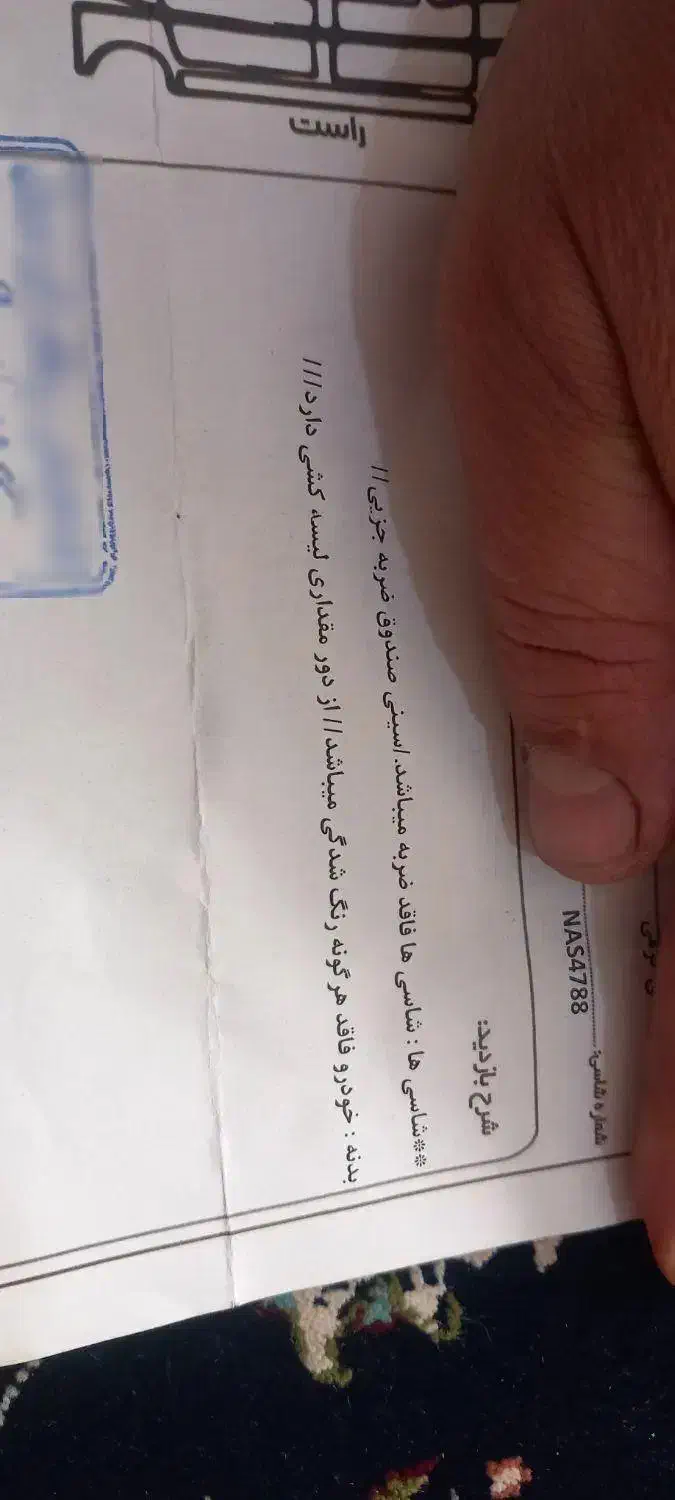 شماره شاسی:
NAS4788
شرح بازدید:
**شاسی ها : شاسی ها فاقد ضربه میباشد./سینی صندوق ضربه جزیی//
بدنه : خودرو فاقد هر گونه رنگ شدگی میباشد// از دور مقداری لیسه کشی دارد///
راست